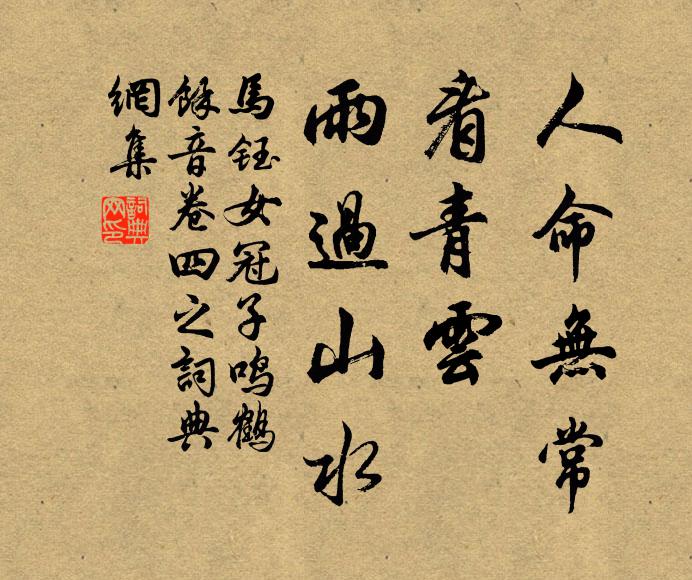 人命無常
看青雲
雨過山水
馬鈺女冠子鳴鶴
餘音卷四之詞典
網集
詞典
网印